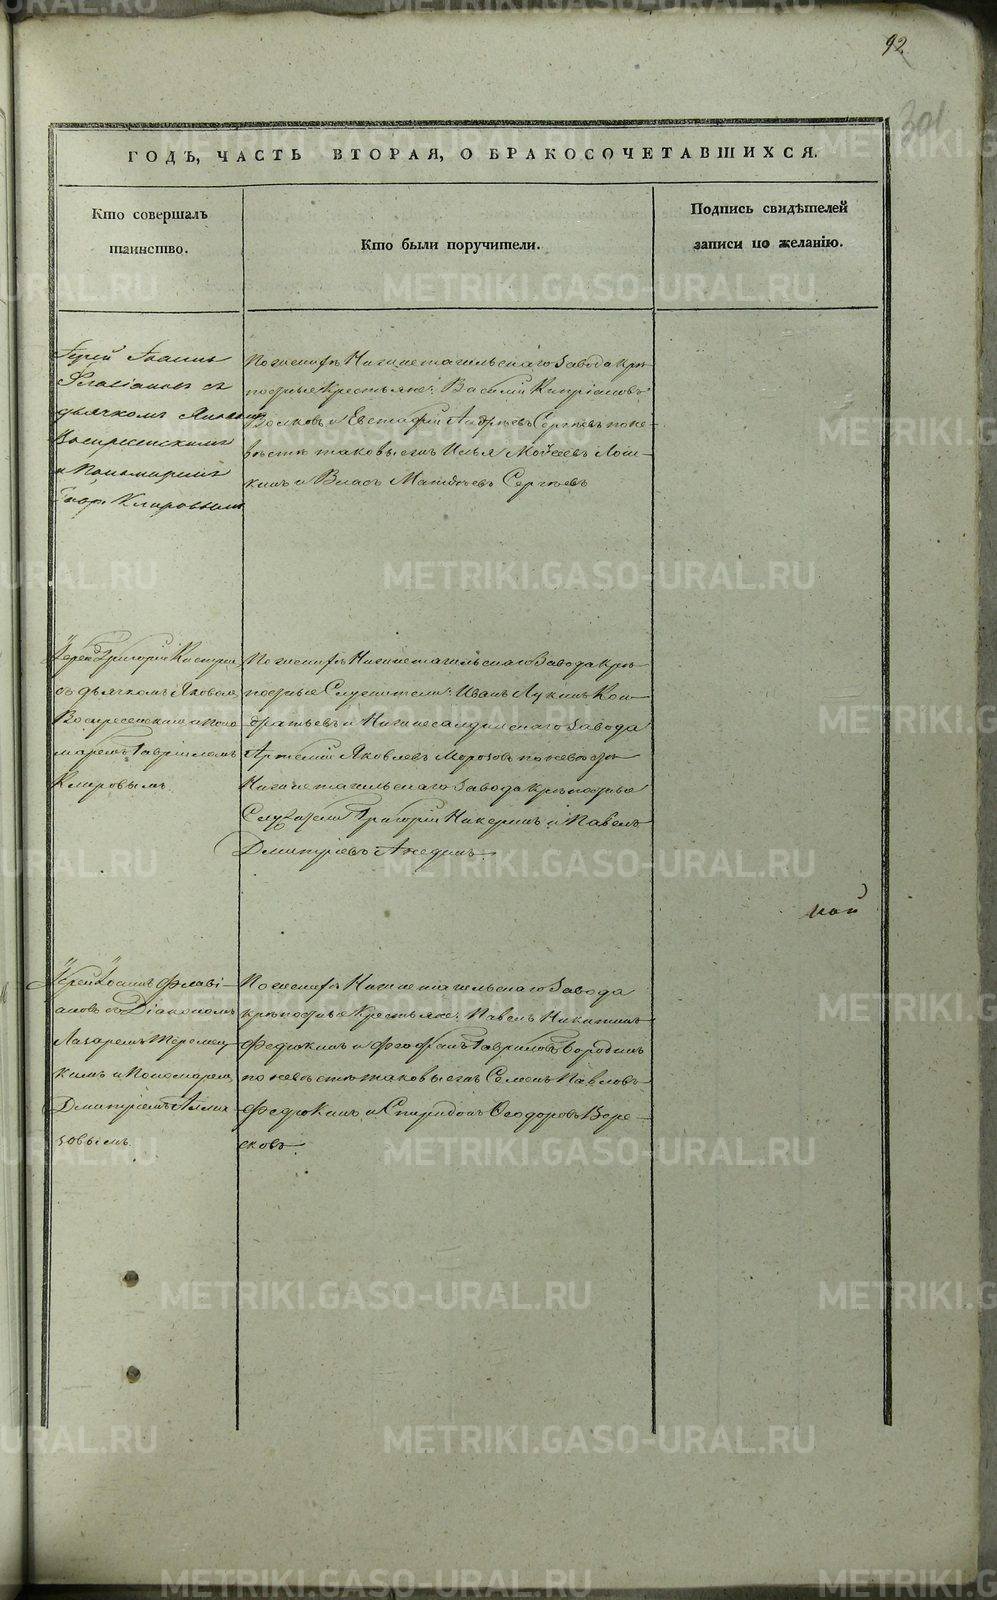 92
301
ГОДЪ, ЧАСТЬ ВТОРАЯ, О БРАКОСОЧЕТАВШИХСЯ.
Кто совершалъ
таинство.
Кто были поручители.
Подпись свидѣтелей
записи по желанію.
Іерей Іоаннъ
Флавіановъ съ
дьячкомъ
Воскресенскимъ
и Пономаремъ
Гавр. Клировымъ
По женихѣ Нижнетагильскаго Завода крѣ-
постные Крестьяне: Василій Кипріановъ
Волковъ и Евстафій Андреевъ Сергѣевъ по не-
вѣстѣ таковые жъ Илья Моѵсеевъ
и Власъ Матвѣевъ Сергѣевъ
Іерей Григорій
съ дьячкомъ Яковомъ
Воскресенскимъ и Поно-
маремъ Гавріиломъ
Клировымъ.
По женихѣ Нижнетагильскаго Завода крѣ-
постные Служители: Иванъ Лукинъ Кон-
дратьевъ и Нижнесалдинскаго Завода
Артемій Яковлевъ Морозовъ по невѣстѣ
Нижнетагильскаго Завода крѣпостные
Служители Григорій Никеринъ и Павелъ
Дмитріевъ
Іерей Іоаннъ Флаві-
ановъ съ Діакономъ
Лазаремъ
и Пономаремъ
Дмитріемъ Алма-
зовымъ.
По женихѣ Нижнетагильскаго Завода
крѣпостные Крестьяне: Павелъ Никитинъ
Федюкинъ и Феофанъ Гавриловъ Бородинъ
по невѣстѣ таковые жъ Семенъ Павловъ
Федюкинъ и Спиридонъ Ѳеодоровъ Вере-
сковъ.
кой
METRIKI.GASO-URAL.RU